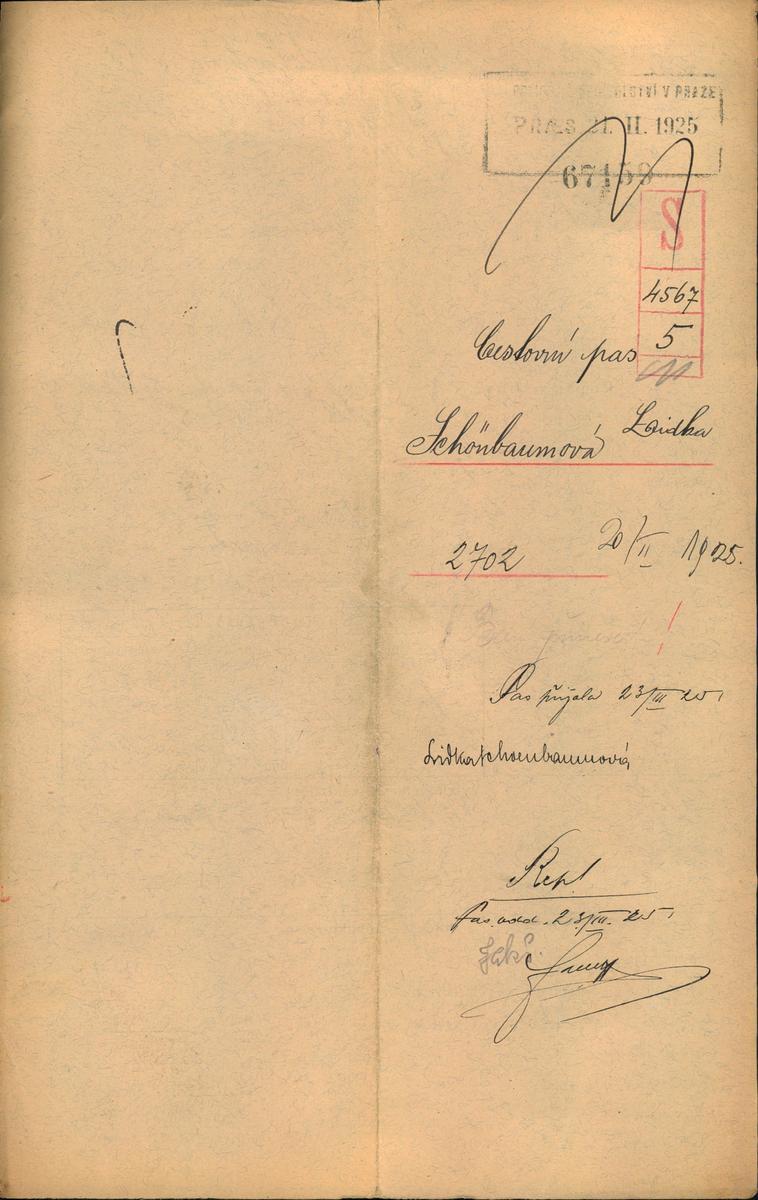 LSTVÍ V PRAZE
PRÆS 21. II. 1925
67159
S
4567
5
Cestovní pas
Schönbaumová Lidka
2702 20/II 1925.
!
Pas přijala 23/III 25
Lidka Schoenbaumová
Rept
Pas odd. 23/III. 25